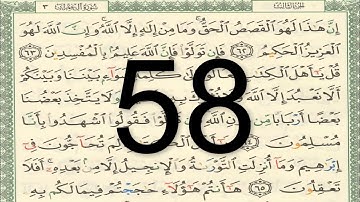 الجزء الثالث سورة آل عمران ٣
إِنَّ هَٰذَا لَهُوَ ٱلْقَصَصُ ٱلْحَقُّ وَمَا مِنْ إِلَٰهٍ إِلَّا ٱللَّهُ وَإِنَّ ٱللَّهَ لَهُوَ
ٱلْعَزِيزُ ٱلْحَكِيمُ ٦٢ فَإِن تَوَلَّوْا۟ فَإِنَّ ٱللَّهَ عَلِيمٌۢ بِٱلْمُفْسِدِينَ ٦٣
قُلْ يَٰٓأَهْلَ ٱلْكِتَٰبِ كَلِمَةٍ بَيْنَنَا وَبَيْنَكُمْ
أَلَّا نَعْبُدَ إِلَّا ٱللَّهَ وَلَا يَتَّخِذَ بَعْضُنَا
بَعْضًا أَرْبَابًا مِّن دُونِ فَقُولُوا۟ ٱشْهَدُوا۟ بِأَنَّا
مُسْلِمُونَ لِمَ تُحَآجُّونَ فِىٓ
إِبْرَٰهِيمَ وَمَآ أُنزِلَتِ ٱلتَّوْرَىٰةُ وَٱلْإِنجِيلُ إِلَّا مِنۢ بَعْدِهِۦٓ أَفَلَا
تَعْقِلُونَ ٦٥ هَٰٓأَنتُمْ هَٰٓؤُلَآءِ حَٰجَجْتُمْ فِيمَا لَكُم بِهِۦ
58